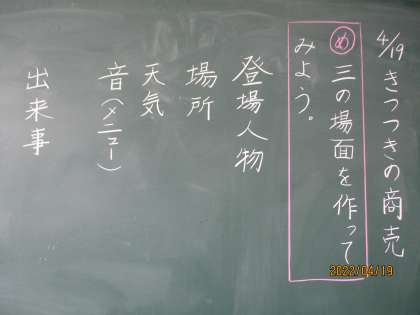 4/19 きつつきの商売
め 三の場面を作って
みよう。
登場人物
場所
天気
音(メニュー)
出来事
2022/04/19